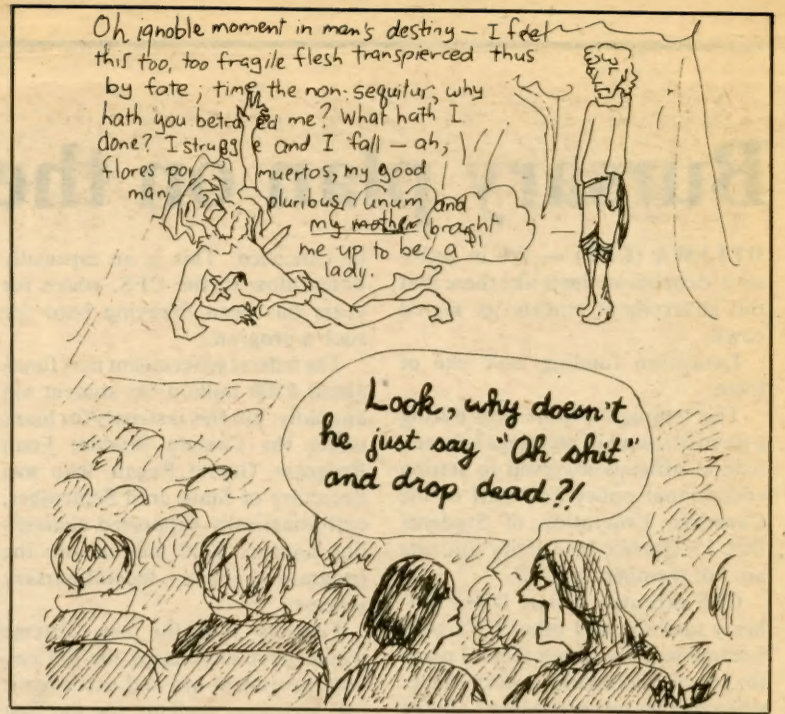 Oh ignoble moment in man's destiny — I feel
this too, too fragile flesh transpierced thus
by fate; time the non-sequitur, why
hath you betrayed me? What hath I
done? I struggle and I fall — ah,
flores por muertos, my good
man pluribus unum and
my mother braght
me up to be a
lady.
Look, why doesn't
he just say "Oh shit"
and drop dead?!